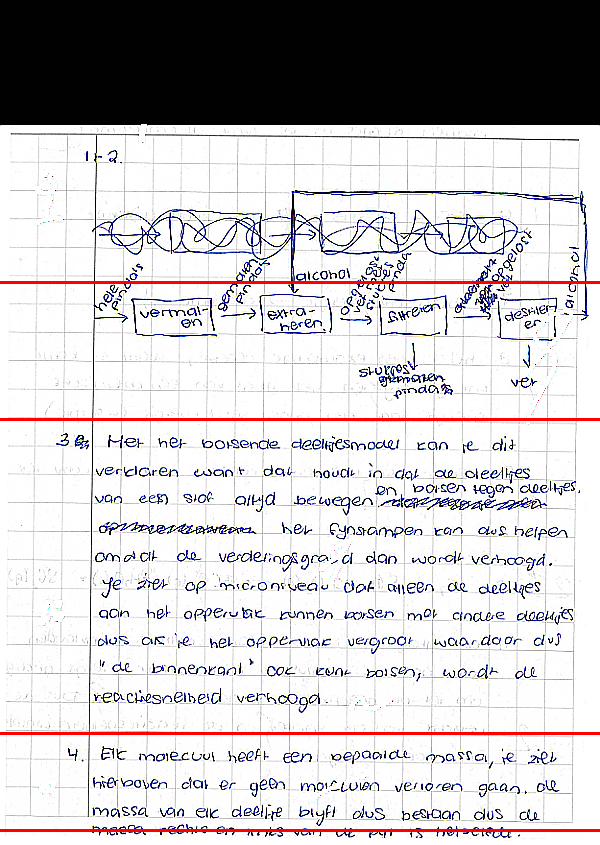 1+2.
alcohol
alcohol
hele pinda's
vermal-
en
gemalen pinda's
extra-
heren
opgelost vet met stukjes pinda
filtreren
opgelost vet
destiler-
er
vet
gemalen
pinda's
3 Met het botsende deeltjesmodel kan je dit
verklaren want dat houdt in dat de deeltjes
van een stof altijd bewegen en botsen tegen deeltjes.
het fijnstampen kan dus helpen
omdat de verdelingsgraad dan wordt verhoogd.
Je ziet op microniveau dat alleen de deeltjes
aan het oppervlak kunnen botsen met andere deeltjes
dus als je het oppervlak vergroot waardoor dus
"de binnenkant" ook kunt botsen, wordt de
reactiesnelheid verhoogd.
4. Elk molecuul heeft een bepaalde massa, je ziet
hierboven dat er geen moleculen verloren gaan. de
massa van elk deeltje blijft dus bestaan dus de
massa rechts en links van de pijl is hetzelfde.